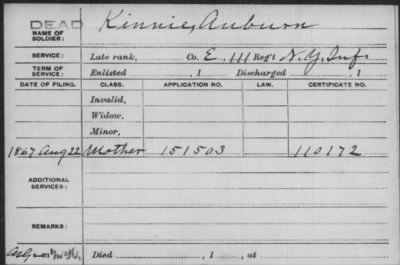 DEAD
NAME OF SOLDIER: Kinnie, Auburn
SERVICE: Late rank, Co. E, 111 Reg't N.Y. Inf.
TERM OF SERVICE: Enlisted , 1 Discharged , 1
DATE OF FILING. CLASS. APPLICATION NO. LAW. CERTIFICATE NO.
Invalid,
Widow,
Minor,
1867 Aug 22 Mother 151503 110172
ADDITIONAL SERVICES:
REMARKS:
Died , 1 , at